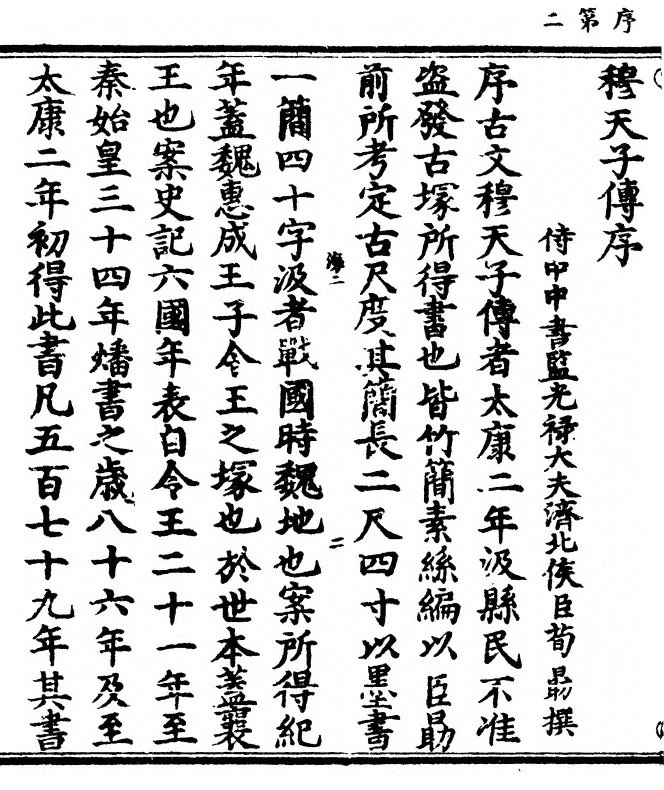 序第二
穆天子傳序
侍中中書監光祿大夫濟北侯臣荀勗撰
序古文穆天子傳者太康二年汲縣民不准
盜發古塚所得書也皆竹簡素絲編以臣勗
前所考定古尺度其簡長二尺四寸以墨書
海二
二
一簡四十字汲者戰國時魏地也案所得紀
年蓋魏惠成王子令王之塚也於世本蓋襄
王也案史記六國年表自令王二十一年至
秦始皇三十四年燔書之歲八十六年及至
太康二年初得此書凡五百七十九年其書